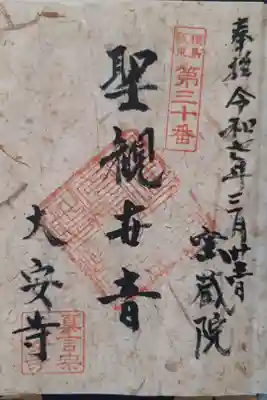 奉拝 令和七年三月廿一日
宝蔵院
第三十番
聖観世音
大安寺
真言宗